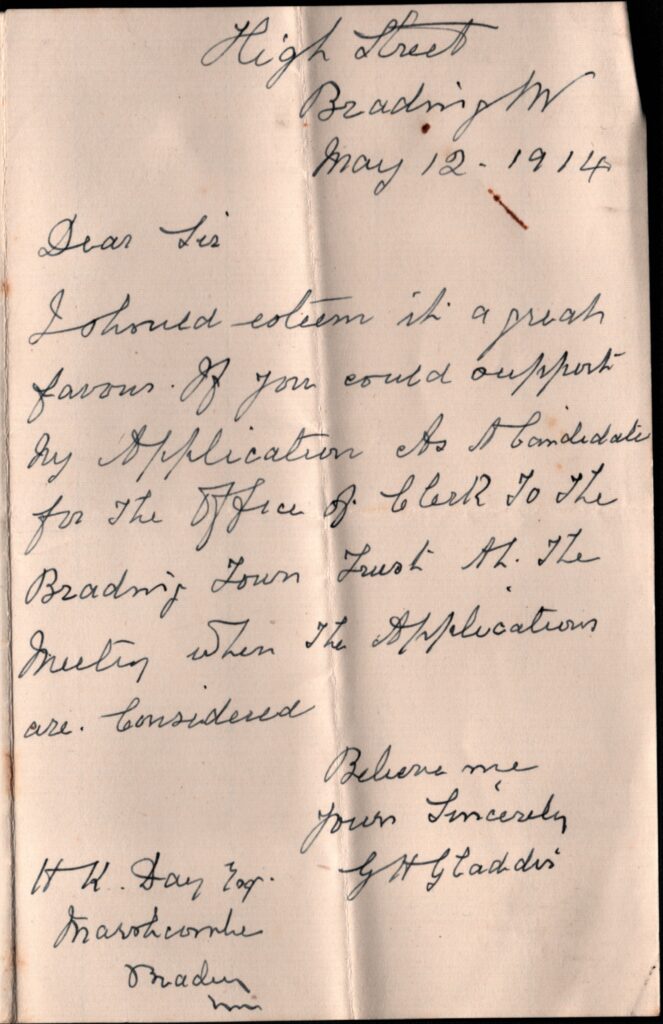 High Street
Brading IW
May 12 - 1914
Dear Sir
I should esteem it a great
favour. If you could support
My Application As A Candidate
for The Office of Clerk To The
Brading Town Trust At. The
Meeting when The Applications
are. Considered
Believe me
Yours Sincerely
G H Gladdis
H K. Day Esq.
Marshcombe
Brading